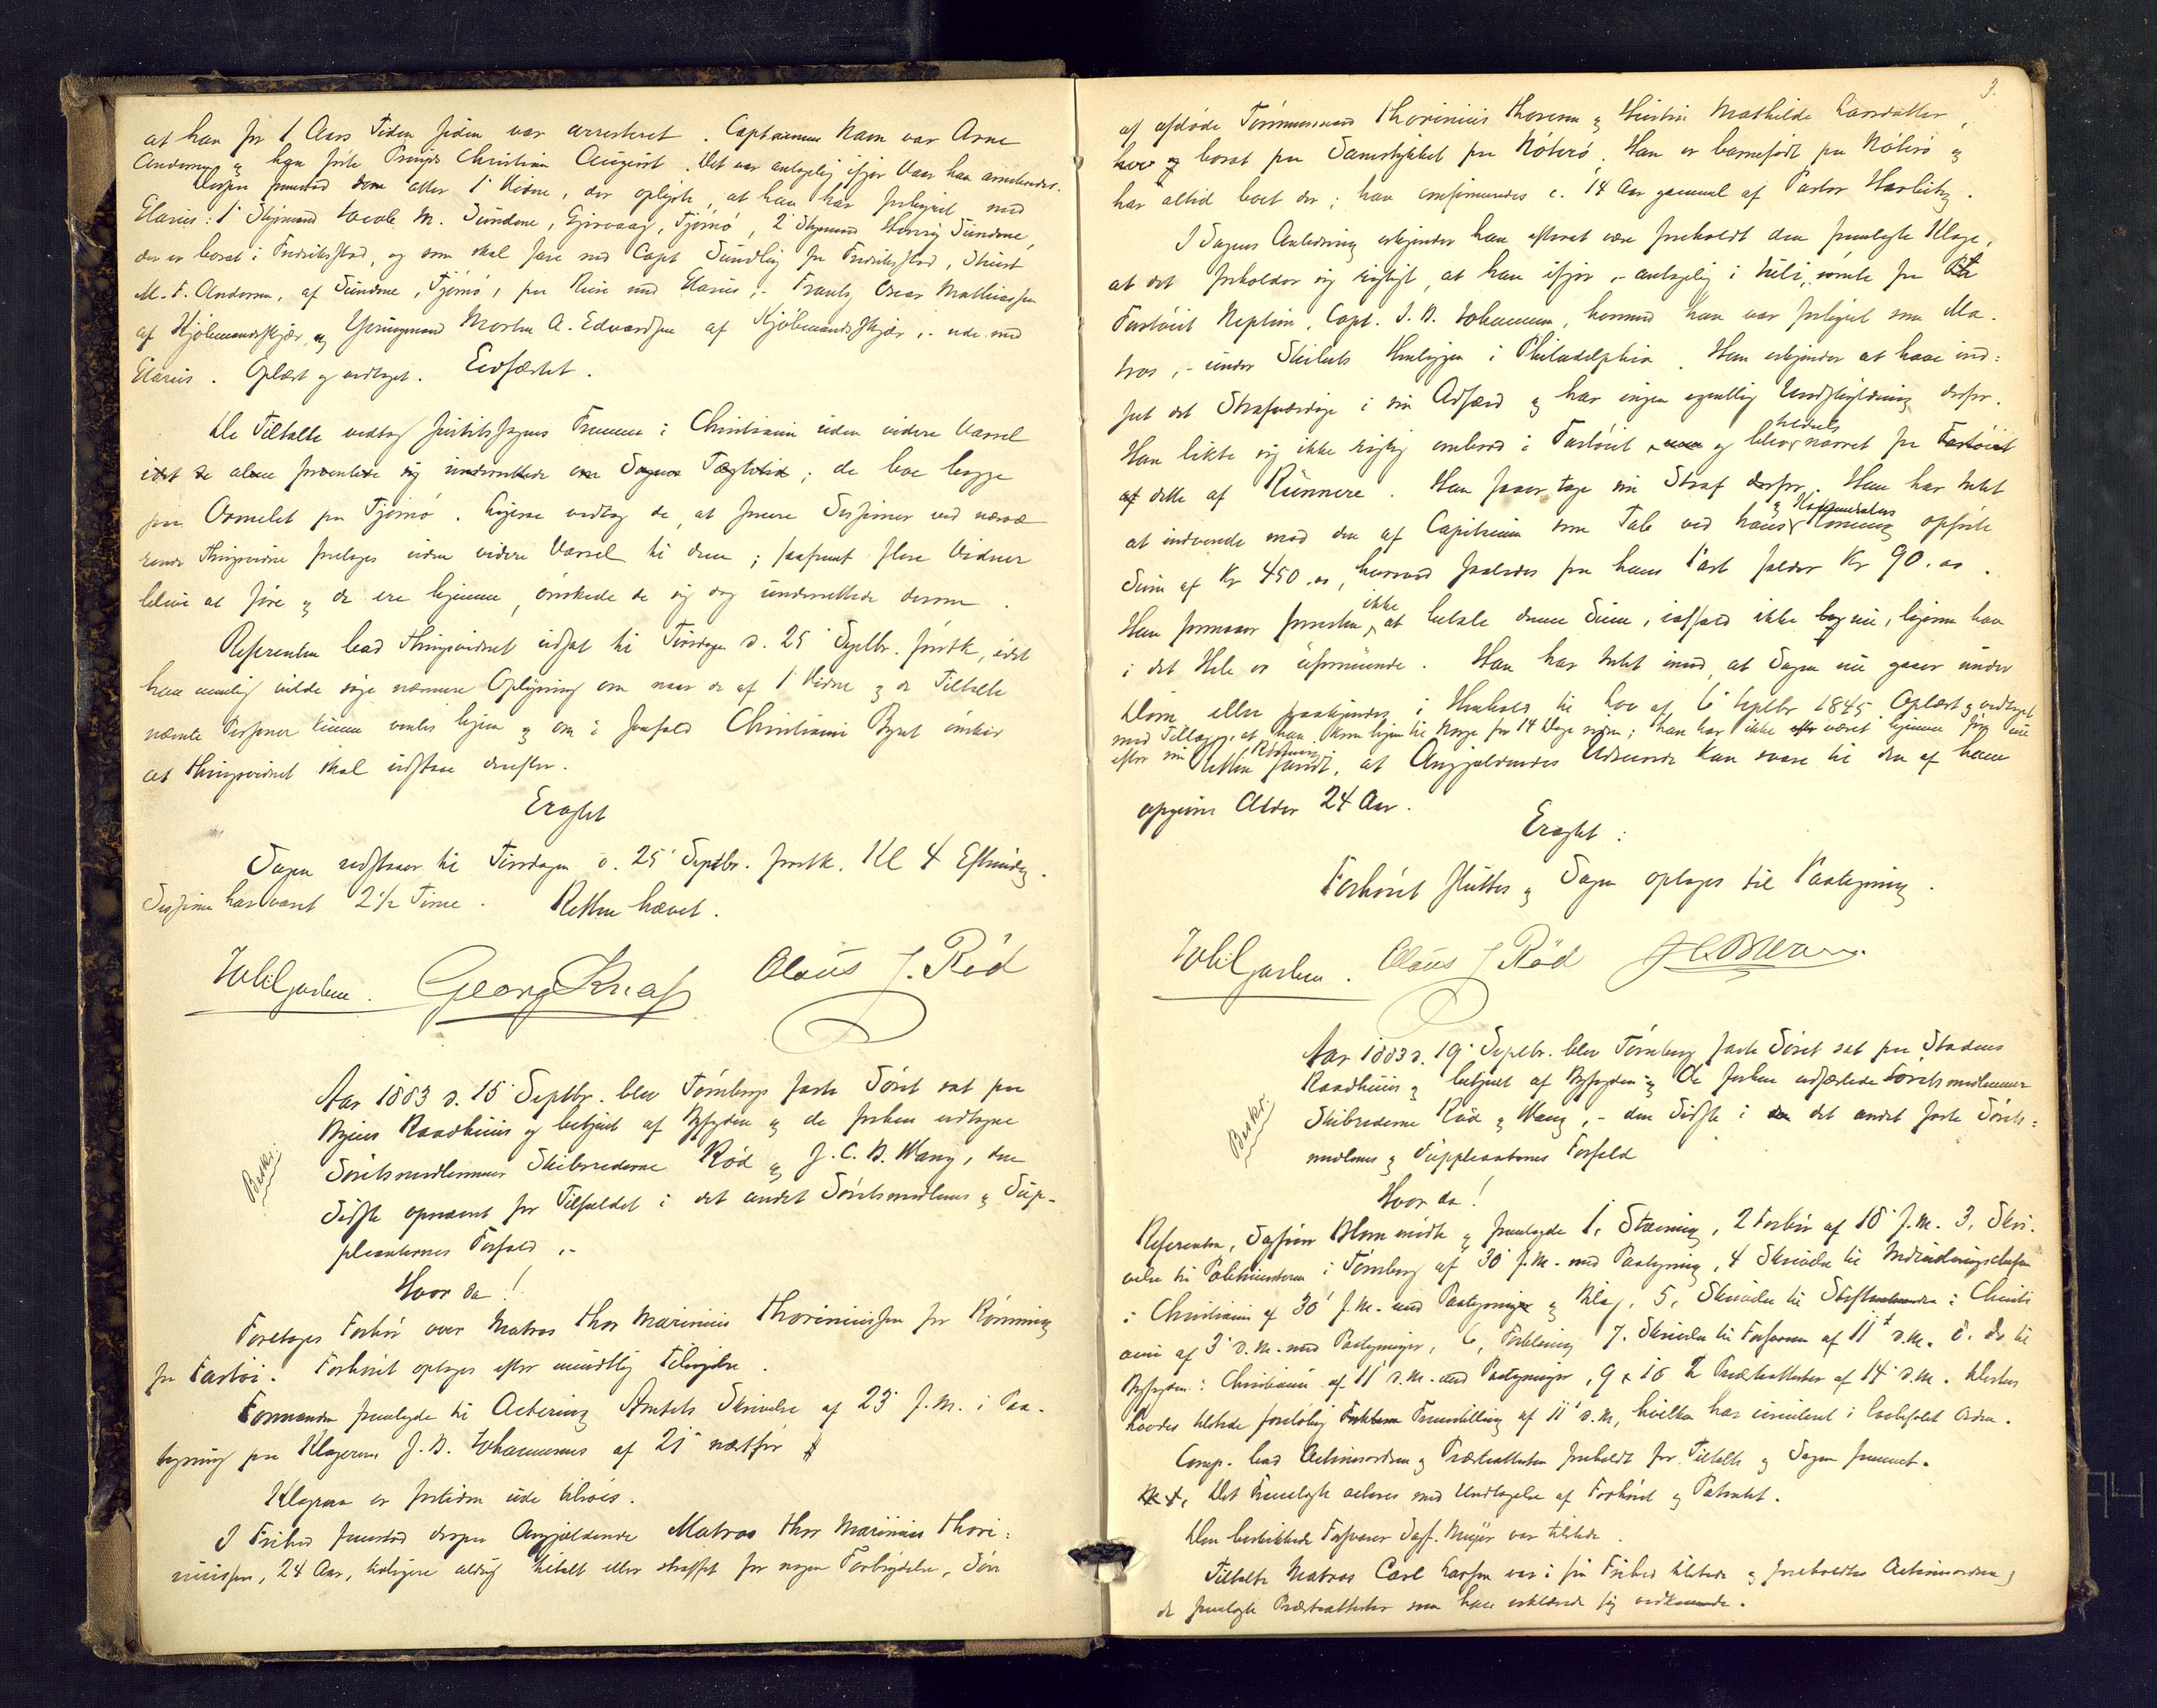 at han for 1 Aars Tiden siden var arresteret. Captainens Navn var Arne
Andersen og han førte Prinds Christian August. Det var antagelig ifjor Vaar han arresteredes.
Derpaa fremstod atter 1' Vidne, der oplyste, at han har forhyret med
Glarus: 1' Styrmand Jacob M. Sundene, Grevaag, Tjømø, 2' Styrmand Henrik Sundene,
der er bosat i Fredrikstad, og som skal fare med Capt Sundby fra Fredrikstad, Stuert
M. F. Andersen, af Sundene, Tjømø, paa Reise med Glarus,- Frants Oscar Mathiassen
af Kjøbmandskjær, og Jungmand Morten A. Edvardsen af Kjøbmandskjær,- ude med
Glarus. Oplæst og vedtaget. Eedfæstet.
De Tiltalte vedtog Justitssagens Fremme i Christiania uden videre Varsel
idet de alene forventede sig underrettede om Sagens Tægtetid; de bor begge
paa Ormelet paa Tjømø. Ligesaa vedtog de, at senere Sessioner ved nærvæ
rende Thingsvidne foretages uden videre Varsel til dem; saafremt flere Vidner
bleve at føre og de ere hjemme, ønskede de sig dog underrettede derom.
Referenten bad Thingsvidnet udsat til Tirsdagen d. 25' Septbr. førstk., idet
han nemlig vilde søge nærmere Oplysning om naar de af 1' Vidne og de Tiltalte
nævnte Personer kunne ventes hjem og om i saafald Christiania Byret ønsker
at Thingsvidnet skal udstaa derefter.
Eragtet
Sagen udstaaer til Tirsdagen d. 25' Septbr. førstk. Kl 4 Eftmiddag.
Sessionen har varet 2 1/2 Time. Retten hævet.
Georg Knap Olaus J. Röd
Aar 1883 d. 15' Septbr. blev Tønsbergs faste Søret sat paa
Byens Raadhuus og betjent af Byfogden og de forhen udtagne
Søretsmedlemmer Skibsrederne Röd og J. C. B. Wang, den
Sidste opnævnt for Tilfældet i det andet Søretsmedlems og Sup-
pleanternes Forfald,-
Beskr.
Hvor da!
Foretages Forhør over Matros Thor Marinius Thoriniussen for Rømning
fra Fartøi. Forhøret optages efter mundtlig Tilsigelse.
Formanden fremlagde til Actering Amtets Skrivelse af 23' f.M. i Paa-
tegning paa Klagerens J. B. Johannesens af 21' næstfør
Klageren er fortiden ude tilsøes.
I Frihed fremstod derpaa Angjældende Matros Thor Marinius Thori-
niussen, 24 Aar, tidligere aldrig tiltalt eller straffet for nogen Forbrydelse, Søn
3.
af afdøde Tømmermand Thorinius Thoresen og Hustru Mathilde Larsdatter,
bosat paa Nøterø. Han er barnefødt paa Nøterø og
har altid boet der; han confirmeredes c. 14 Aar gammel af Pastor
I Sagens Anledning erkjender han efterat være foreholdt den fremlagte Klage,
at det forholder sig rigtigt, at han ifjor,- antagelig i Juli, rømte fra
Fartøiet Neptun, Capt. J. B. Johannesen, hvormed han var forhyret som Ma-
tros,- under Skibets Henliggen i Philadelphia. Han erkjender at have ind-
seet det Strafværdige i sin Adfærd og har ingen egentlig Undskyldning derfor.
Han likte sig ikke rigtig ombord i Fartøiet og blev heels narret fra Fartøiet
af dette af Runnere. Han faaer tage sin Straf derfor. Han har Intet
at indvende mod den af Capitainen som Tab ved hans og Kammeraters Rømning opførte
Sum af Kr 450.00, hvorved saaledes paa hans Part falder Kr 90.00.
Han formaaer foresten ikke at betale denne Sum, ialfald ikke nu, ligesom han
i det Hele er uformuende. Han har Intet imod, at Sagen nu gaaer under
Dom eller paakjendes i Henhold til Lov af 6' Septbr 1845. Oplæst og vedtaget
med Tillæg, at han kom hjem til Norge for 14 Dage siden; han har ikke været hjemme før nu
efter sin Rømning. Retten fandt, at Angjældendes Udseende kan svare til den af ham
opgivne Alder 24 Aar.
Eragtet:
Forhøret sluttes og Sagen optages til Paategning.
Olaus J Röd
Aar 1883 d. 19' Septbr. blev Tønsberg faste Søret sat paa Stadens
Raadhuus og betjent af Byfogden og de forhen udfærdede Søretsmedlemmer
Skibsrederne Röd og Wang,- den Sidste i det andet faste Sørets-
medlems og Suppleanternes Forfald
Beskr.
Hvor da!
Referenten, Sagfører Blom mødte og fremlagde 1, Stævning, 2 Forhør af 18' f.M. 3, Skri-
velse til Politimesteren i Tønsberg af 30' f.M. med Paategning, 4 Skrivelse til Indrulleringschefen
i Christiania af 30' f.M. med Paategninger og Bilag, 5, Skrivelse til Stiftamtmanden i Christi
ania af 3' d.M. med Paategninger, 6, 7. Skrivelse til Forsvareren af 11' d.M. 8. do til
Byfogden i Christiania af 11' d.M. med Paategninger, 9 & 10 2 Præsteattester af 14' d.M. Desuden
havdes tilstede foreløbig Fremstilling af 11' d.M., hvilken har circuleret i lovbefalet Orden.
Comp. bad Actionsordren og Præsteattesten foreholdt for Tiltalte og Sagen fremmet.
Det Fremlagte acteres med Undtagelse af Forhøret og
Den beskikkede Forsvarer Sagf. Meyer var tilstede.
Tiltalte Matros Carl Larsen var i fri Frihed tilstede og foreholdtes Actionsordren og
de fremlagte Præsteattester som han erklærede sig vedkommende.